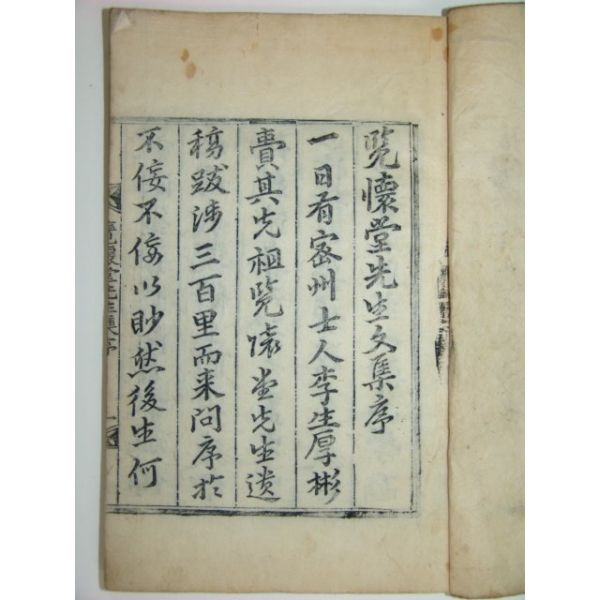 覽懷堂先生文集序
一日有密州士人李生厚彬
賷其先祖覽懷堂先生遺
稿跋涉三百里而来問序於
不佞不佞以眇然後生何
覽懷堂先生集序
一